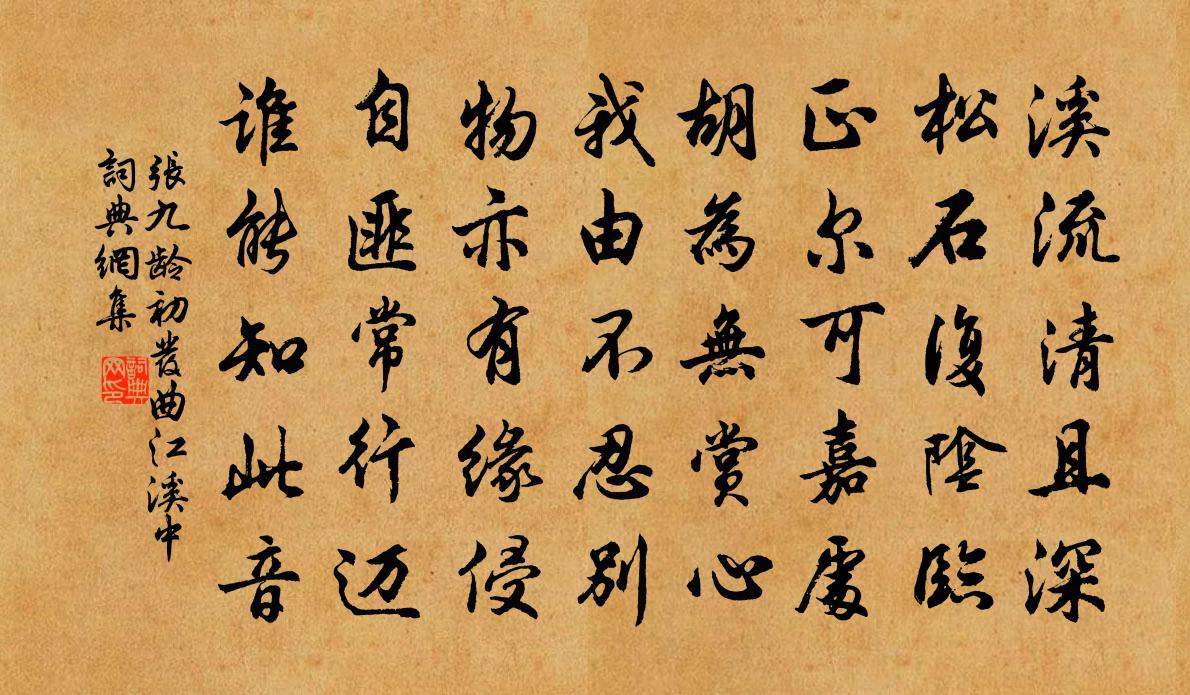 溪流清且深
松石復陰臨
正尔可嘉處
胡為無賞心
我由不忍別
物亦有緣侵
自匪常行迈
誰能知此音
張九齡初發曲江溪中
詞典網集
詞典
网印